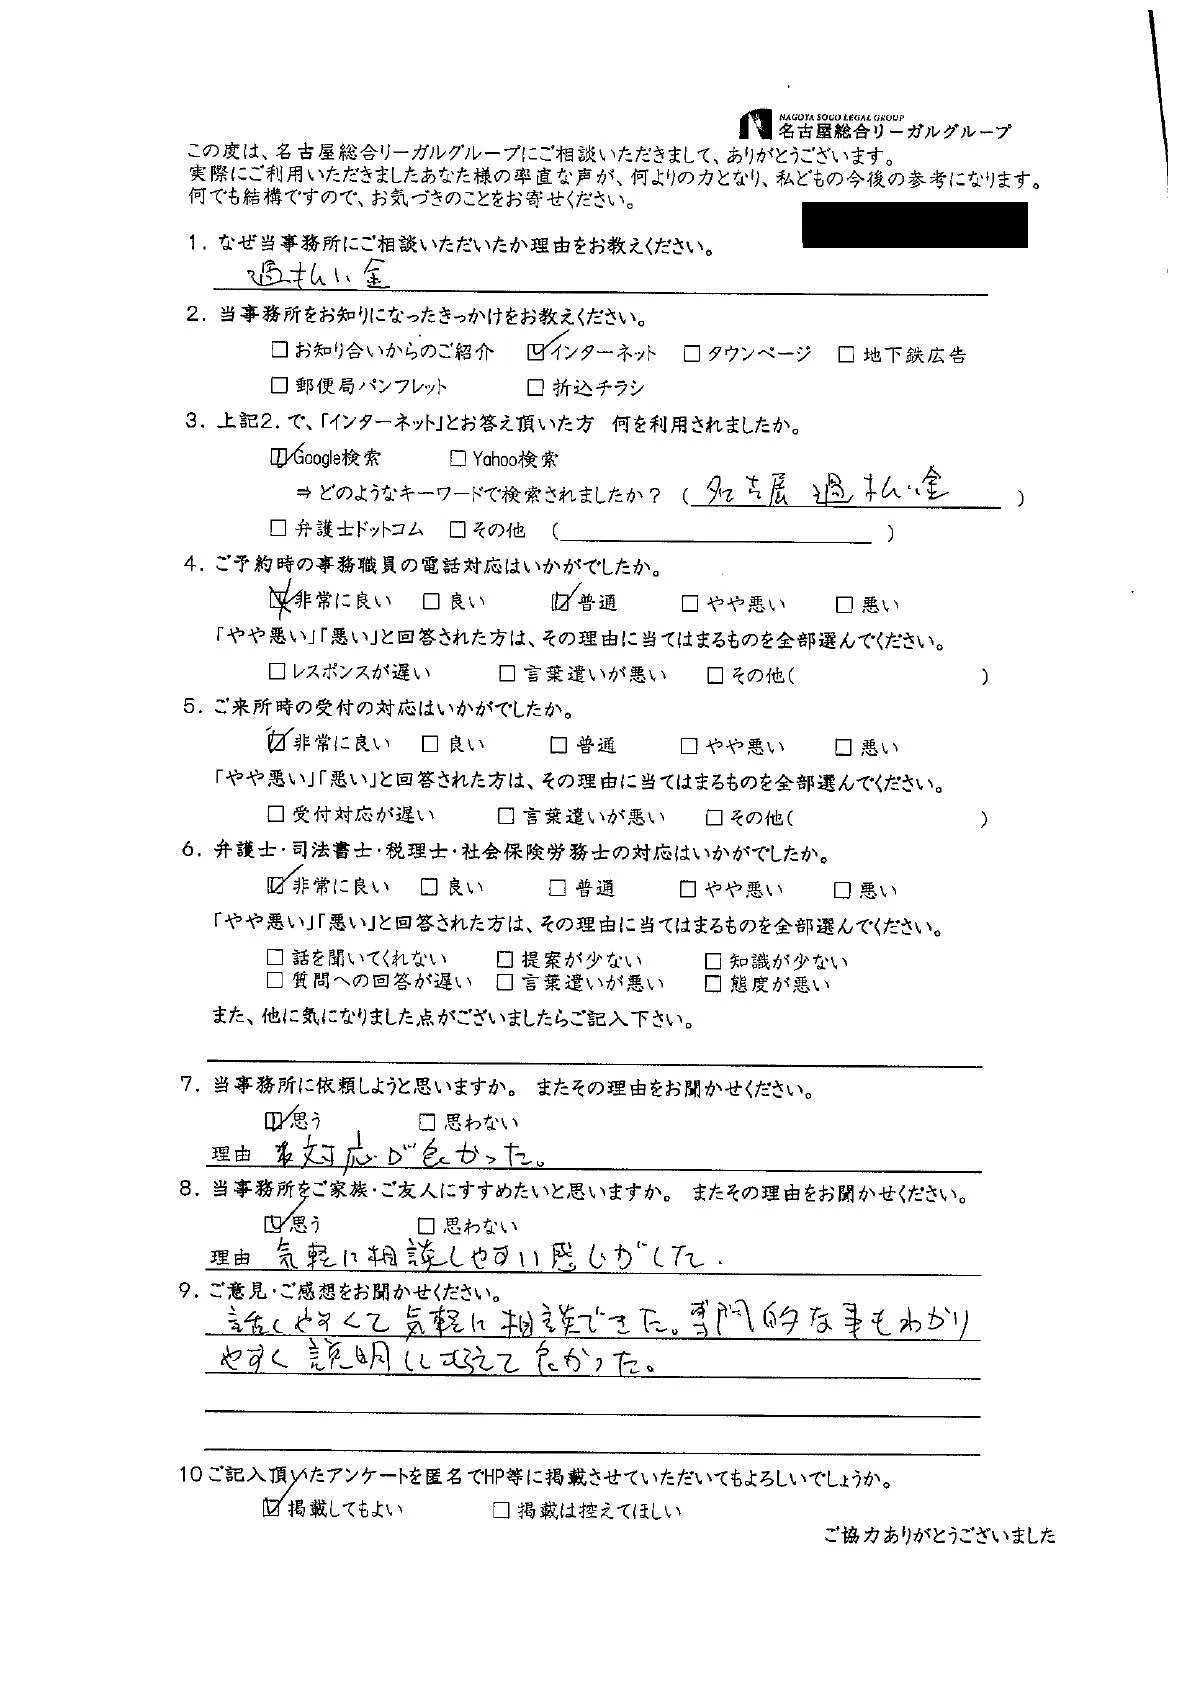 NAGOYA SOGO LEGAL GROUP
名古屋総合リーガルグループ
この度は、名古屋総合リーガルグループにご相談いただきまして、ありがとうございます。
実際にご利用いただきましたあなた様の率直な声が、何よりの力となり、私どもの今後の参考になります。
何でも結構ですので、お気づきのことをお寄せください。
1. なぜ当事務所にご相談いただいたか理由をお教えください。
過払い金
2. 当事務所をお知りになったきっかけをお教えください。
□お知り合いからのご紹介 ☑インターネット □タウンページ □地下鉄広告
□郵便局パンフレット □折込チラシ
3. 上記2. で、「インターネット」とお答え頂いた方 何を利用されましたか。
☑Google検索 □Yahoo検索
⇒どのようなキーワードで検索されましたか? (名古屋 過払い金)
□弁護士ドットコム □その他 ( )
4. ご予約時の事務職員の電話対応はいかがでしたか。
☒非常に良い □良い ☑普通 □やや悪い □悪い
「やや悪い」「悪い」と回答された方は、その理由に当てはまるものを全部選んでください。
□レスポンスが遅い □言葉遣いが悪い □その他( )
5. ご来所時の受付の対応はいかがでしたか。
☑非常に良い □良い □普通 □やや悪い □悪い
「やや悪い」「悪い」と回答された方は、その理由に当てはまるものを全部選んでください。
□受付対応が遅い □言葉遣いが悪い □その他( )
6. 弁護士・司法書士・税理士・社会保険労務士の対応はいかがでしたか。
☑非常に良い □良い □普通 □やや悪い □悪い
「やや悪い」「悪い」と回答された方は、その理由に当てはまるものを全部選んでください。
□話を聞いてくれない □提案が少ない □知識が少ない
□質問への回答が遅い □言葉遣いが悪い □態度が悪い
また、他に気になりました点がございましたらご記入下さい。
7. 当事務所に依頼しようと思いますか。 またその理由をお聞かせください。
☑思う □思わない
理由 対応が良かった。
8. 当事務所をご家族・ご友人にすすめたいと思いますか。 またその理由をお聞かせください。
☑思う □思わない
理由 気軽に相談しやすい感じがした.
9. ご意見・ご感想をお聞かせください。
話しやすくて気軽に相談できた。専門的な事もわかり
やすく説明してもらえて良かった。
10ご記入頂いたアンケートを匿名でHP等に掲載させていただいてもよろしいでしょうか。
☑掲載してもよい □掲載は控えてほしい
ご協力ありがとうございました